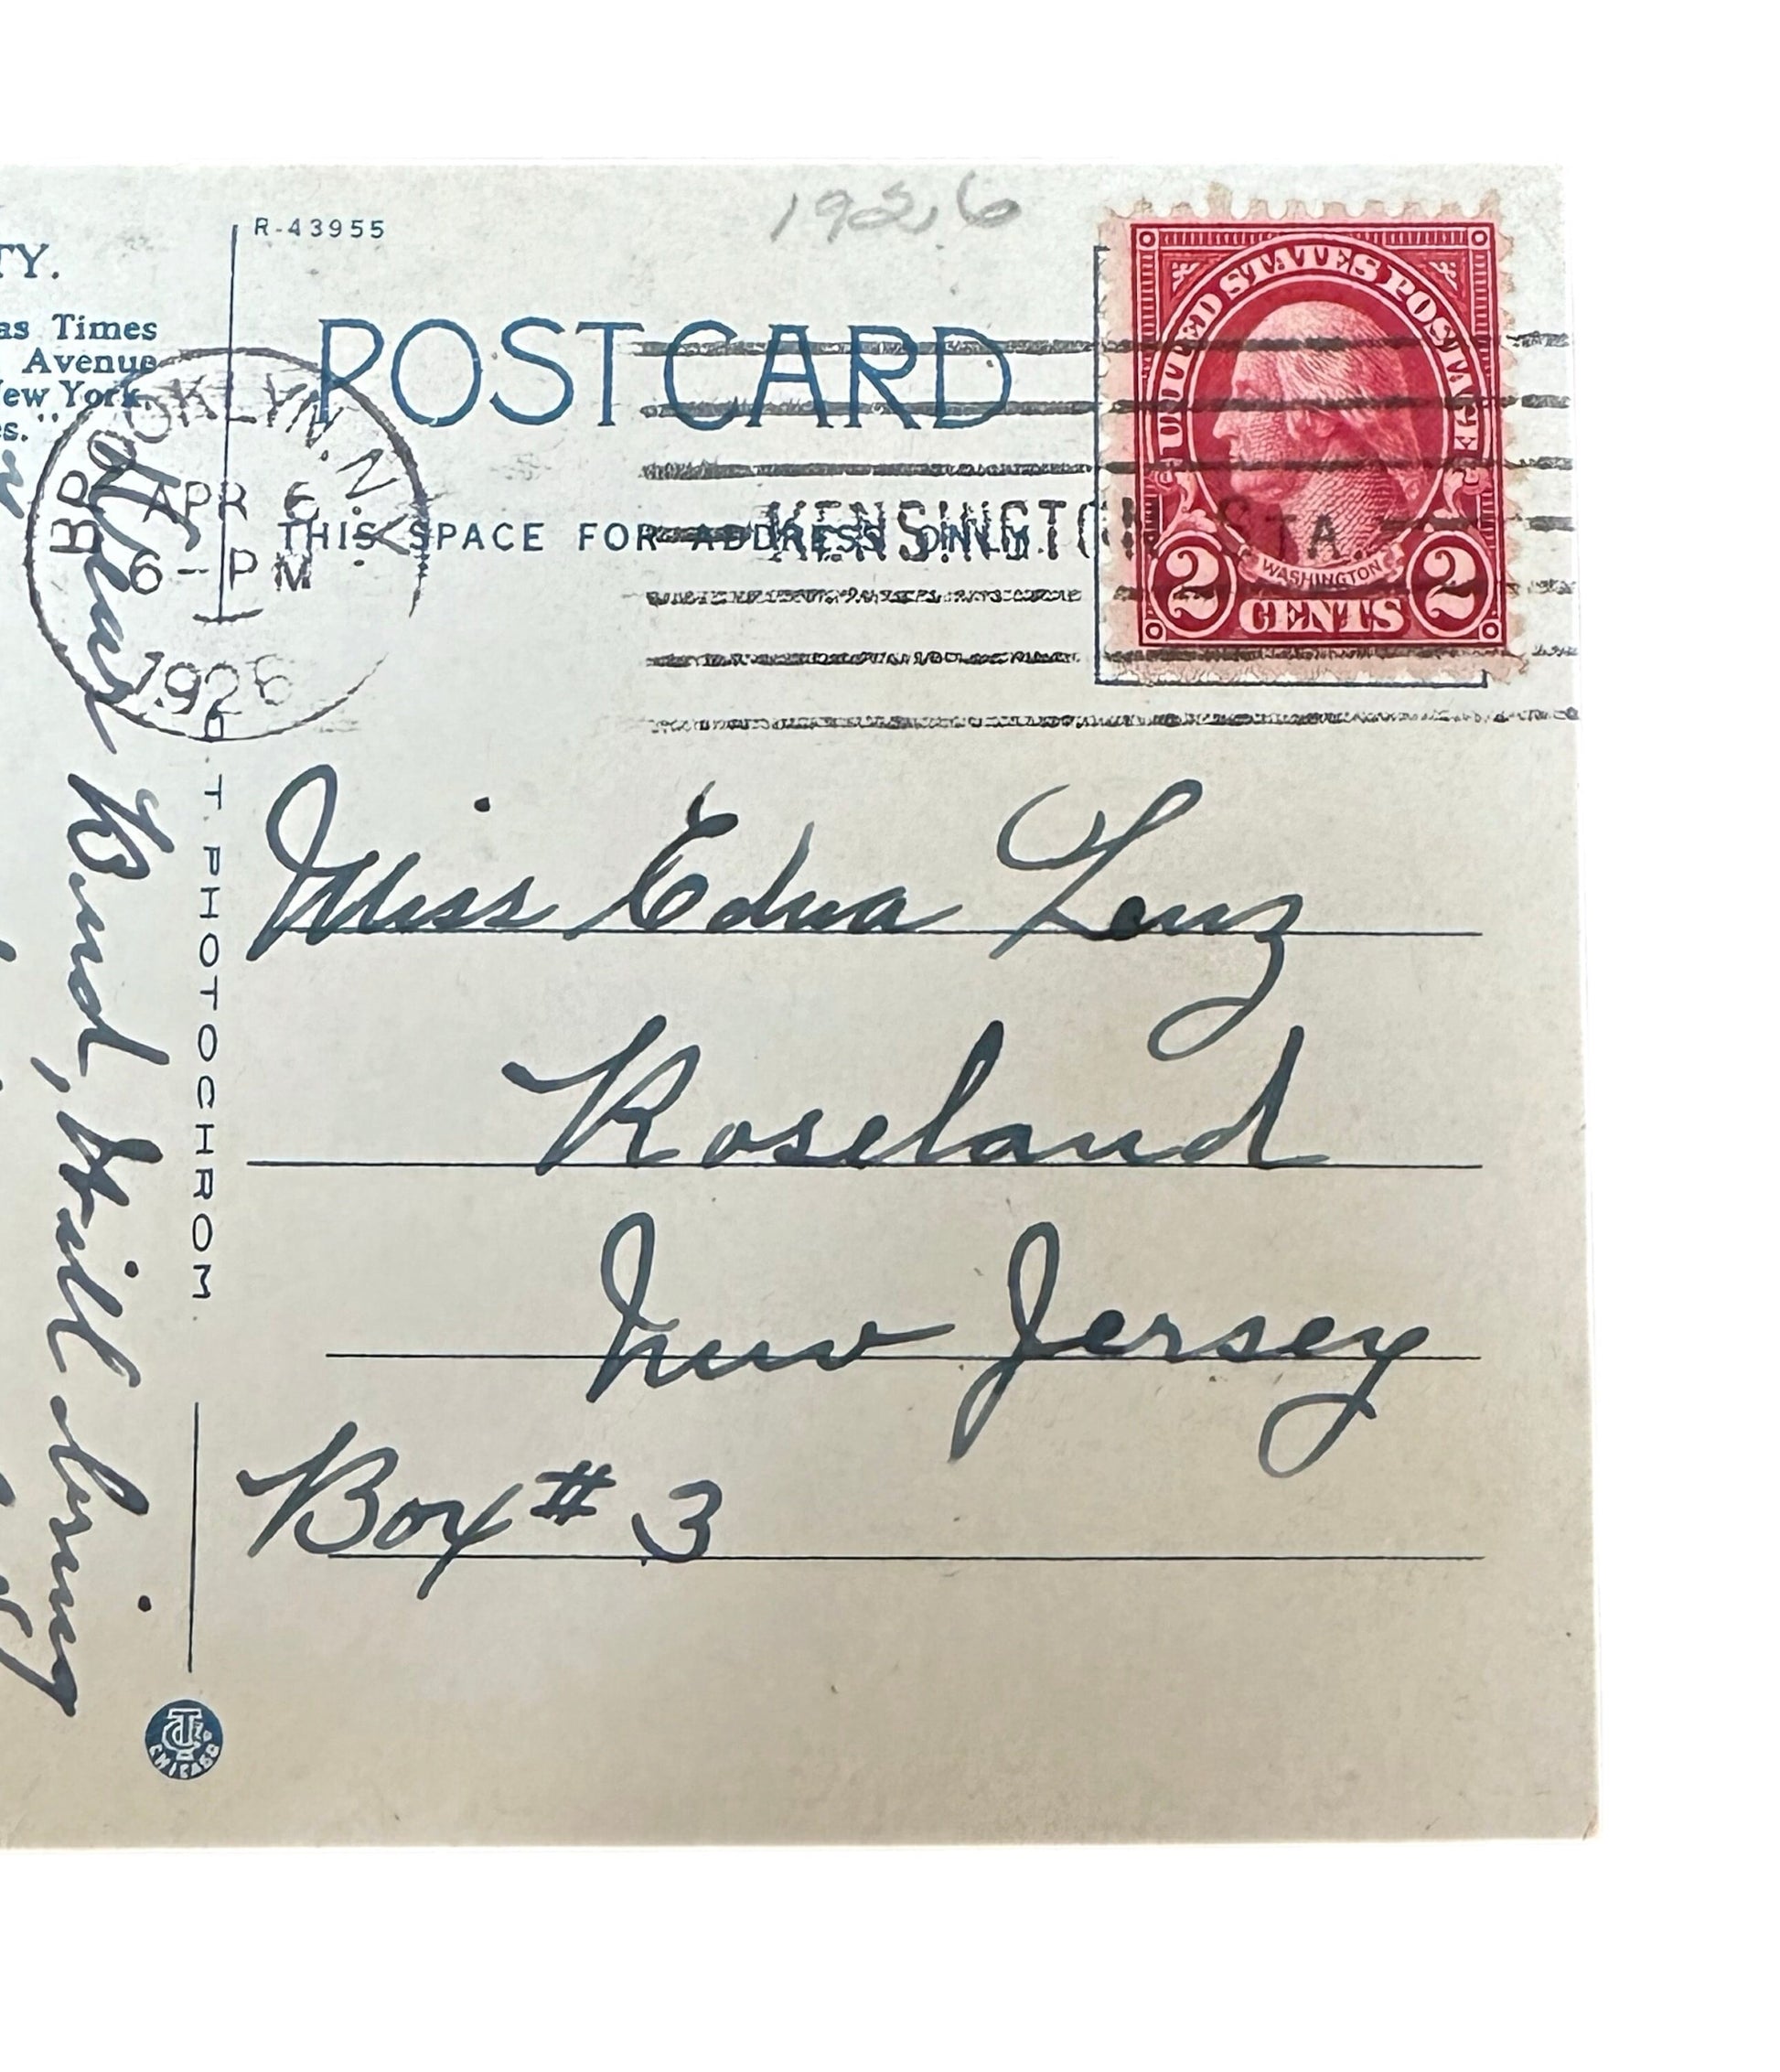 TY.
as Times
Avenue
ew York.
es."
R-43955
1926
POST CARD
THIS SPACE FOR ADDRESS ONLY.
BROOKLYN, N.Y.
APR 6
6-PM
1926
KENSINGTON STA.
UNITED STATES POSTAGE
WASHINGTON
2 CENTS 2
Miss Edna Lenz
Roseland
New Jersey
Box # 3
T PHOTOCHROM
CHICAGO
Dear